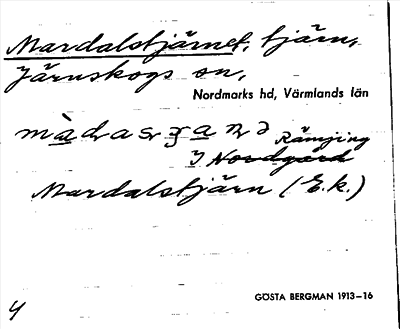 Mardalstjärnet, tjärn,
Järnskogs sn,
Nordmarks hd, Värmlands län
Rämjing
I Nordgård
Mardalstjärn (E.k.)
GÖSTA BERGMAN 1913–16
4